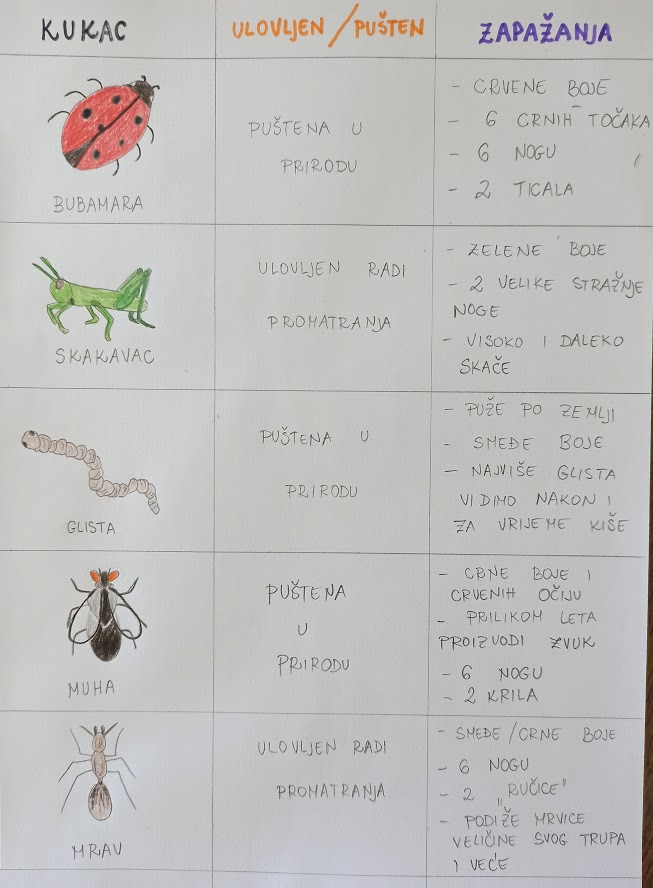 KUKAC
ULOVLJEN / PUŠTEN
ZAPAŽANJA
BUBAMARA
PUŠTENA U
PRIRODU
- CRVENE BOJE
- 6 CRNIH TOČAKA
- 6 NOGU
- 2 TICALA
SKAKAVAC
ULOVLJEN RADI
PROMATRANJA
- ZELENE BOJE
- 2 VELIKE STRAŽNJE
NOGE
- VISOKO I DALEKO
SKAČE
GLISTA
PUŠTENA U
PRIRODU
- PUŽE PO ZEMLJI
- SMEĐE BOJE
- NAJVIŠE GLISTA
VIDIMO NAKON I
ZA VRIJEME KIŠE
MUHA
PUŠTENA
U
PRIRODU
- CRNE BOJE I
CRVENIH OČIJU
- PRILIKOM LETA
PROIZVODI ZVUK
- 6 NOGU
- 2 KRILA
MRAV
ULOVLJEN RADI
PROMATRANJA
- SMEĐE / CRNE BOJE
- 6 NOGU
- 2 „RUČICE"
- PODIŽE MRVICE
VELIČINE SVOG TRUPA
I VEĆE